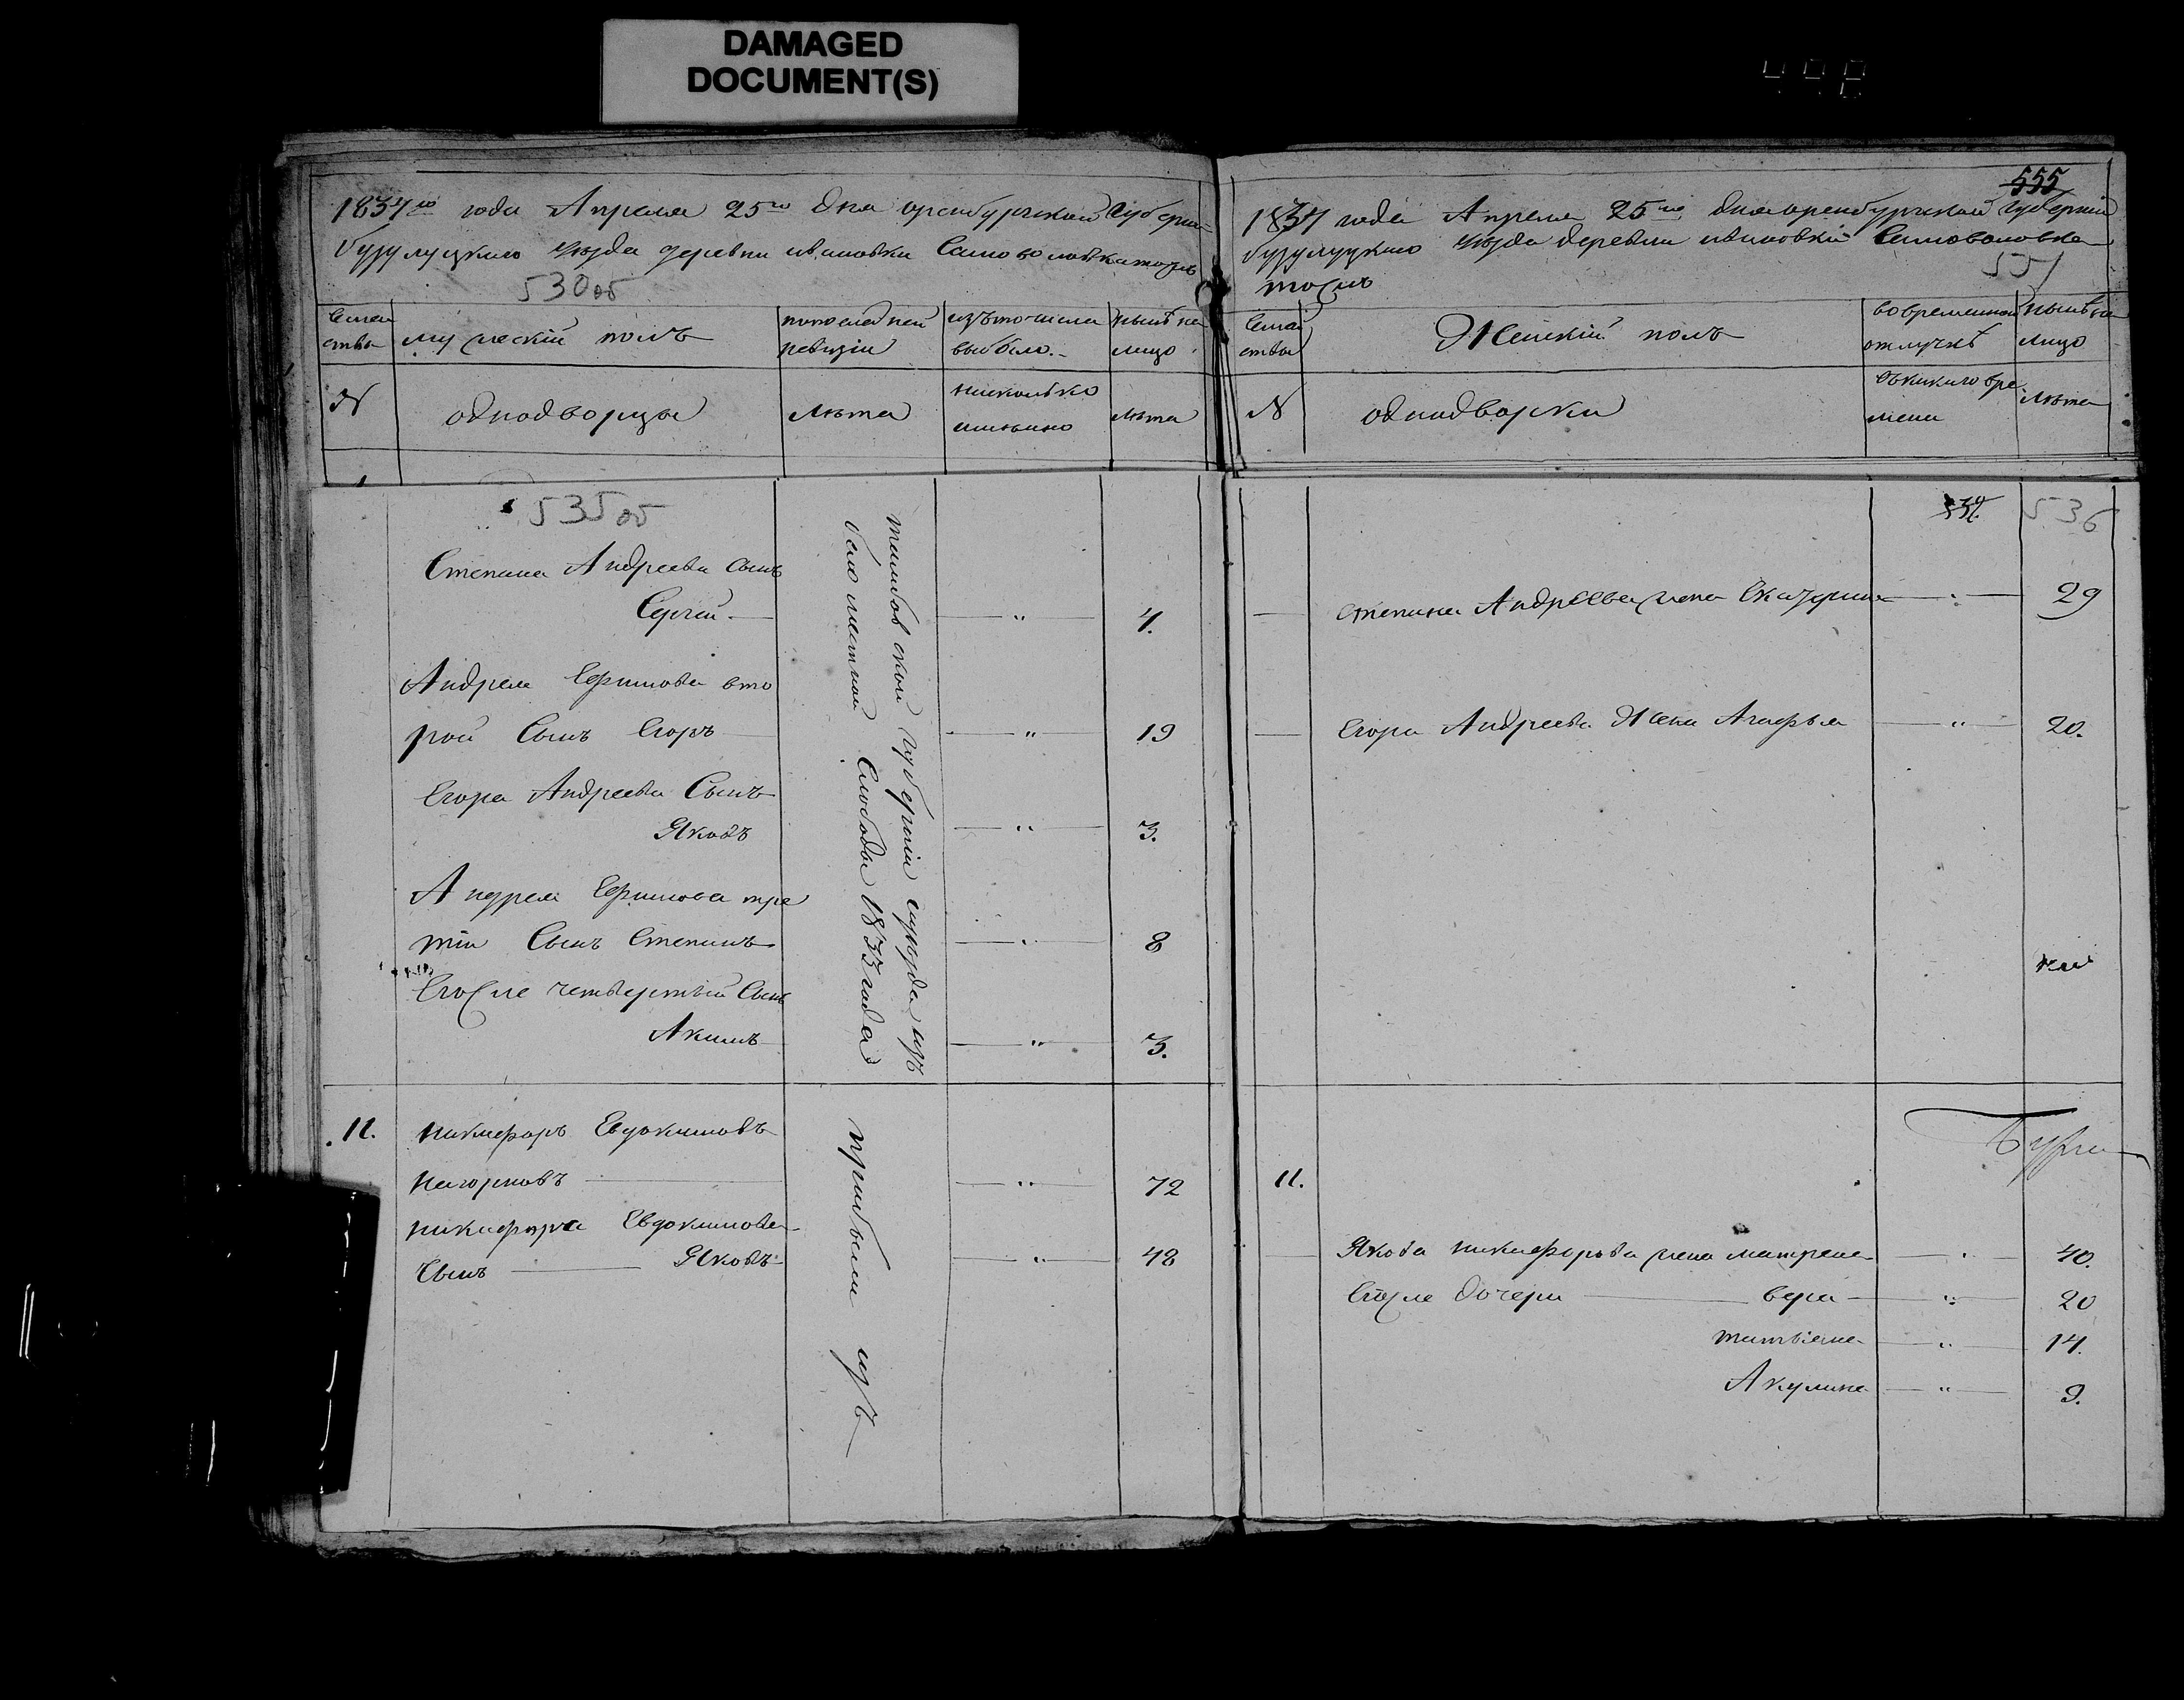 DAMAGED
DOCUMENT(S)
1834го года Апреля 25го дня оренбургской губерни
бузулуцкого уъзда деревни ивановки Самоволовка тожъ
530об
Семей
ства
мужескій полъ
попоследней
ревизіи
изътогочисла
выбыло.
нынѣ на
лицо
№
однодворцы
лѣта
лѣта
535об
Степана Андреева сынъ
Сергей
4.
Андрея Ефимова вто
рой Сынъ Егоръ
19
Егора Андреева Сынъ
Яковъ
3.
Андрея Ефимова тре
тіи Сынъ Степанъ
8
Егоже четвертый Сынъ
Акимъ
3.
тамбовской губерніи изъ
слободы 1833 года
11.
никифоръ Евдокимовъ
нагорновъ
72
никифора Евдокимова
Сынъ Яковъ
48
прибыли изъ
555
1834 года Апреля 25го дня оренбургской губерніи
бузулуцкого уъзда деревни ивановки Самоволовка
тожъ
551
Семей
ства
Женскій полъ
вовременной
отлучкѣ
нынѣ на
лицо
№
однодворки
съкакого вре
мени
лѣта
536
Степана Андреева жена Екатерина
29
Егора Андреева Жена Агафья
20.
11.
Якова никифорова жена матрена
40.
Егоже дочери вера
20
татьяна
14.
Акулина
9.